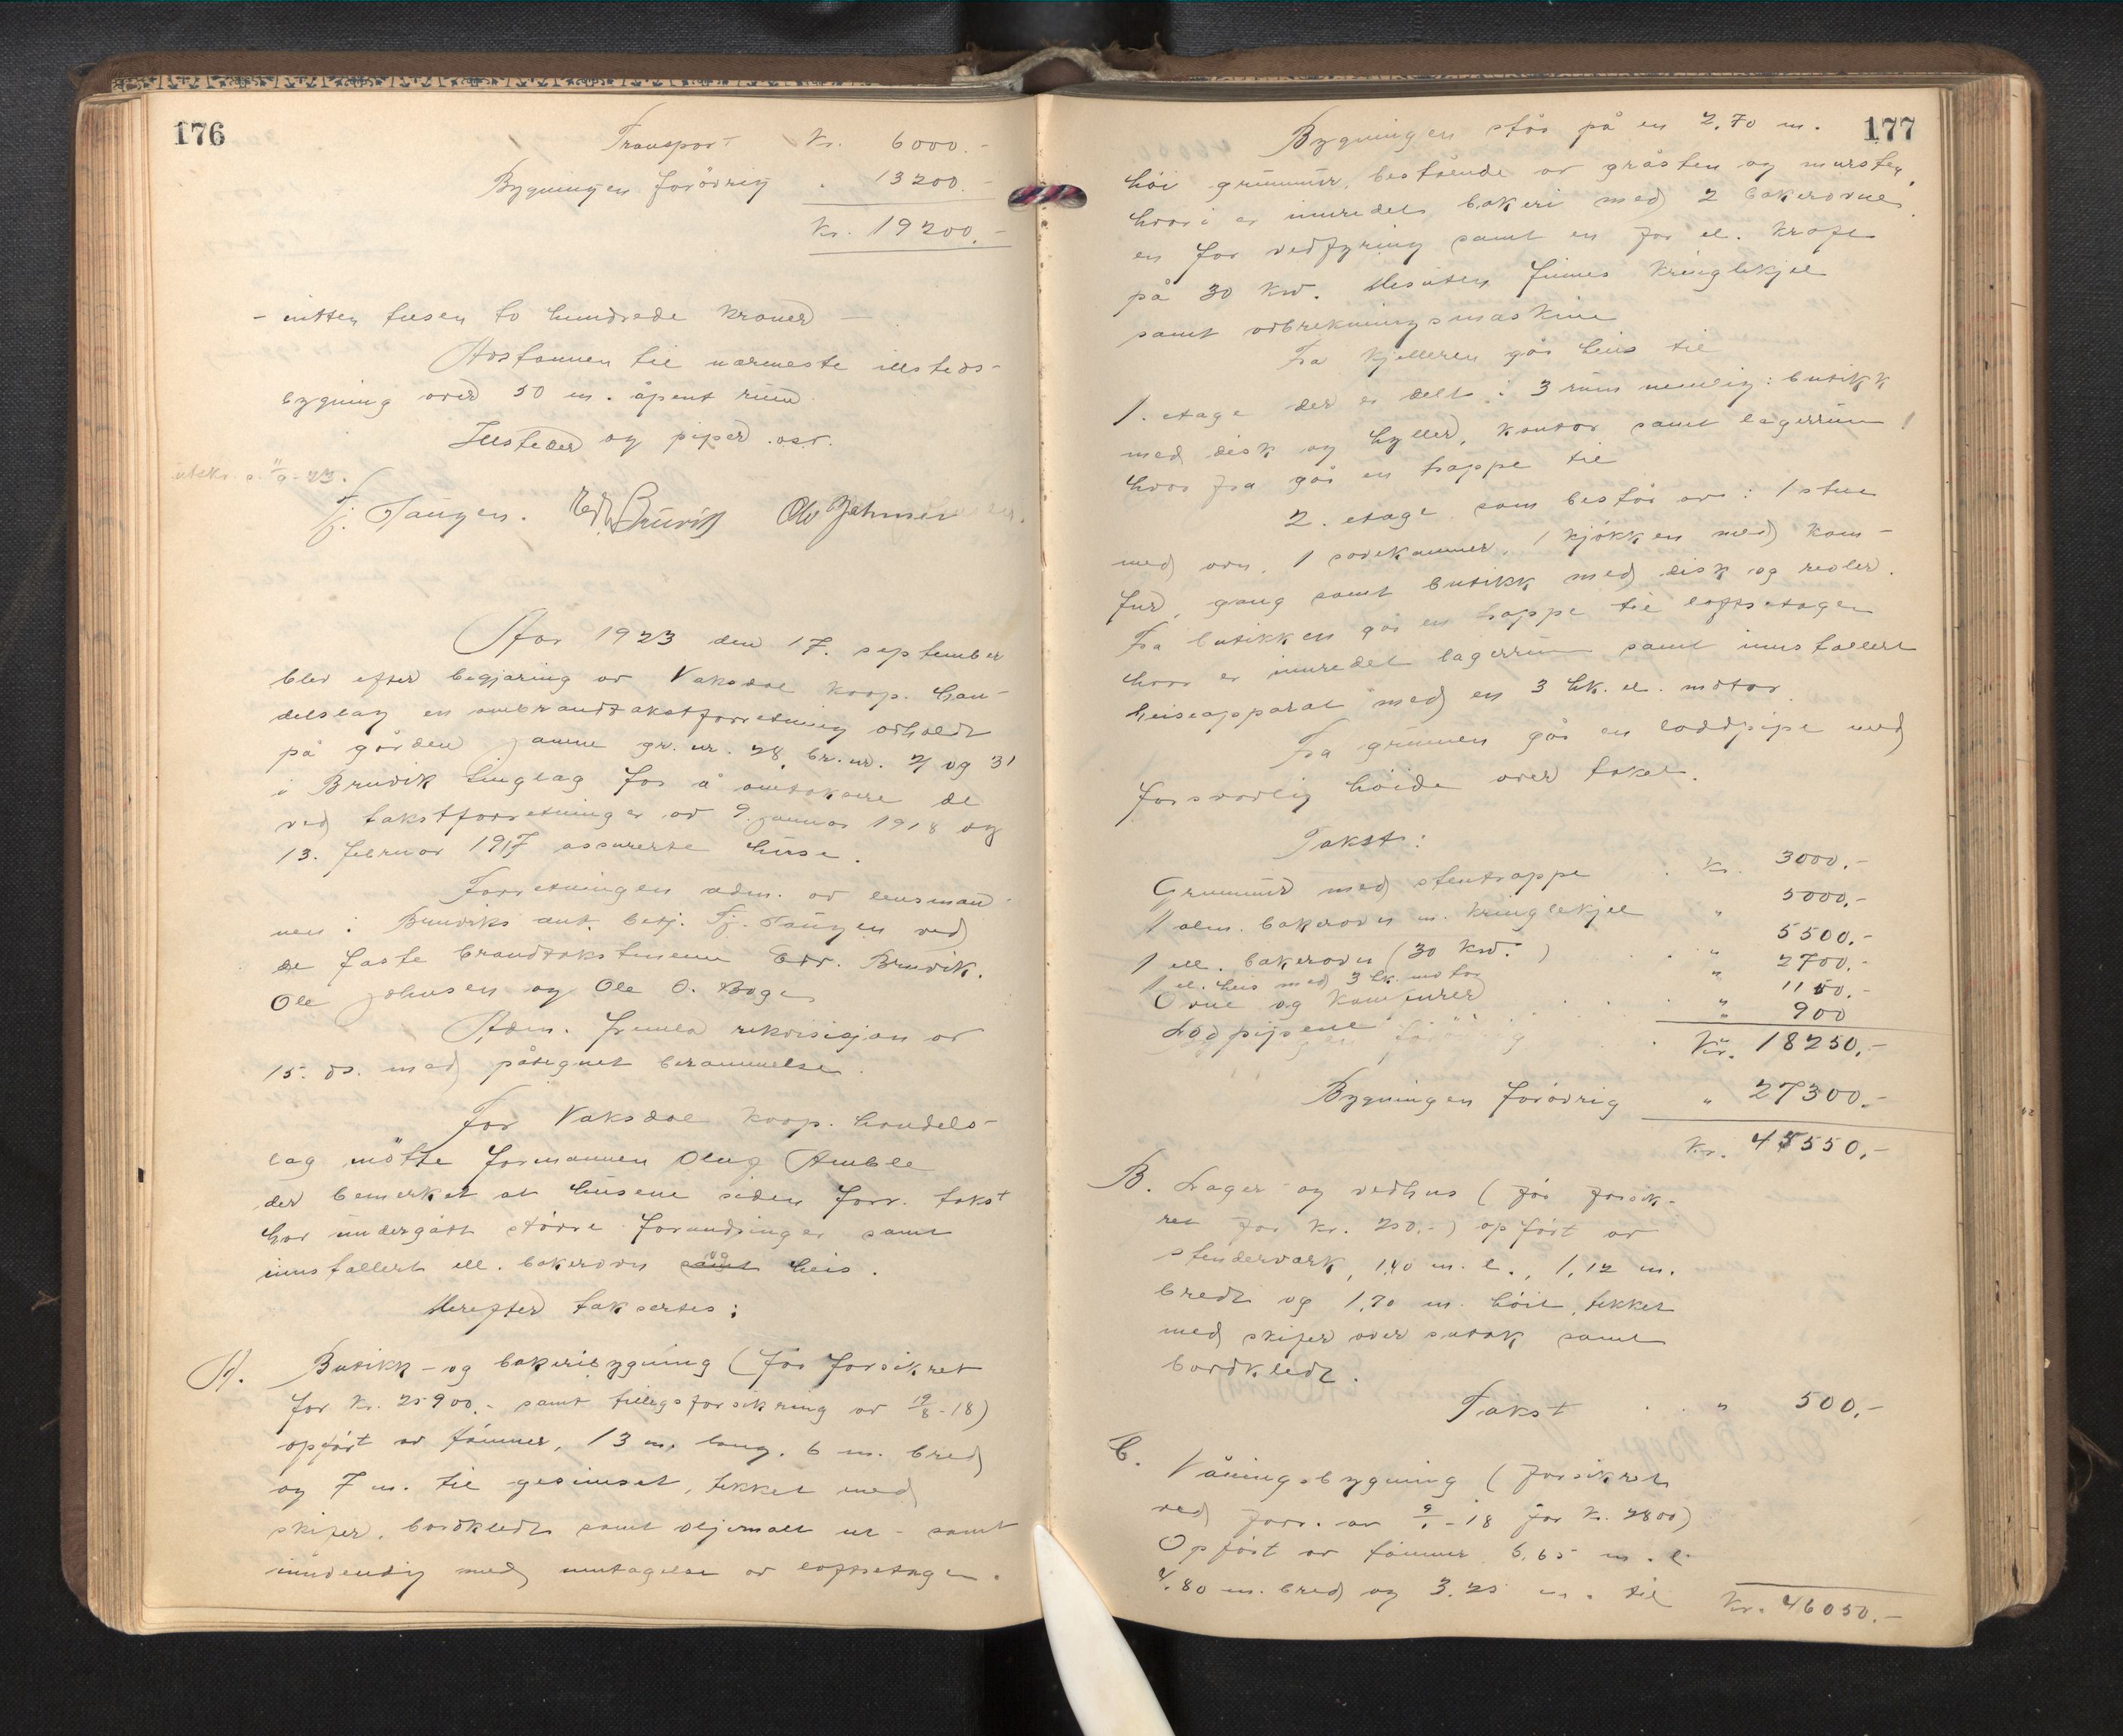 176
Transport Kr. 6000.-
Bygningen forövrig " 13200.-
Kr. 19200.-
- nitten tusen to hundrede kroner -
Avstannen til nærmeste illsteds-
bygning over 50 m. åpent rum.
Illsteder og piper .osv.
utskr. s. 11/9-23.
Tj. Taugen. Edv. Bruvik Ole Johnsen
Aar 1923 den 17. september
blev efter begjæring av Vaksdal koop. han-
delslag en ombrandtakstforretning avholdt
på gården Jamne gr. nr. 28, br. nr. 21 og 31
i Bruvik tinglag for å omtaksere de
ved takstforretninger av 9. januar 1918 og
13. februar 1917 assurerte huse.
Forretningen adm. av lensman-
nen i Bruviks aut. betj. Tj. Taugen ved
de faste brandtakstmenn Edv. Bruvik.
Ole Johnsen og Ole O. Boge
Adm. fremla rekvisisjon av
15. ds. med påtegnet berammelse.
For Vaksdal koop. handels-
lag mötte formannen Olug Amble
der bemerket at husene siden forr. takst
har undergått större forandringer samt
innstallert ell. bakerovn samt og heis.
Herefter taksertes:
A. Butikk- og bakeribygning (för forsikret
for Kr. 25900.- samt tillegsforsikring av 19/8-18)
opfört av tömmer, 13 m. lang, 6 m. bred
og 7 m. til gesimset, tekket med
skifer, bordkledt samt oljemalt ut- samt
innvendig med unntagelse av loftsetagen.
177
Bygningen står på en 2,70 m.
höi grunmur, bestående av gråsten og mursten,
hvori er innredet bakeri med 2 bakerovne,
en for vedfyring samt en for el. kraft
på 30 kw. Desuten finnes kringlekjel
samt utbrekningsmaskine
Fra kjelleren går heis til
1. etage der er delt i 3 rum nemlig: butikk
med disk og hyller, kontor samt lagerrum
hvor fra går en trappe til
2. etage som består av: 1 stue
med ovn, 1 sovekammer, 1 kjökken med kom-
fur, gang samt butikk med disk og reoler.
Fra butikken går en trappe til loftsetagen
hvor er innredet lagerrum samt innstallert
heiseapparat med en 3 hk. el. motor.
Fra grunnen går en loddpipe med
forsvarlig höide over taket.
Takst:
Grunmur med stentrappe . Kr. 3000.-
1 alm. bakerovn m. kringlekjel " 5000.-
1 ell. bakerovn (30 kw.) . . " 5500.-
1 el. heis med 3 hk. motor " 2700.-
Ovne og komfurer . . . " 1150.-
Lodpipene . . " 900
Kr. 18250.-
Bygningen forövrig " 27300.-
Kr. 45550.-
B. Lager- og vedhus (för forsik-
ret for kr. 250.-) opfört av
stenderverk, 1,40 m. l., 1,12 m.
bredt og 1,70 m. höit, tekket
med skifer over sutak samt
bordkledt.
Takst . . " 500.-
C. Våningsbygning (forsikret
ved forr. av 9/1-18 for Kr. 2800)
Opfört av tömmer 6,65 m. l.
4,80 m. bred og 3,25 m. til
Kr. 46050.-